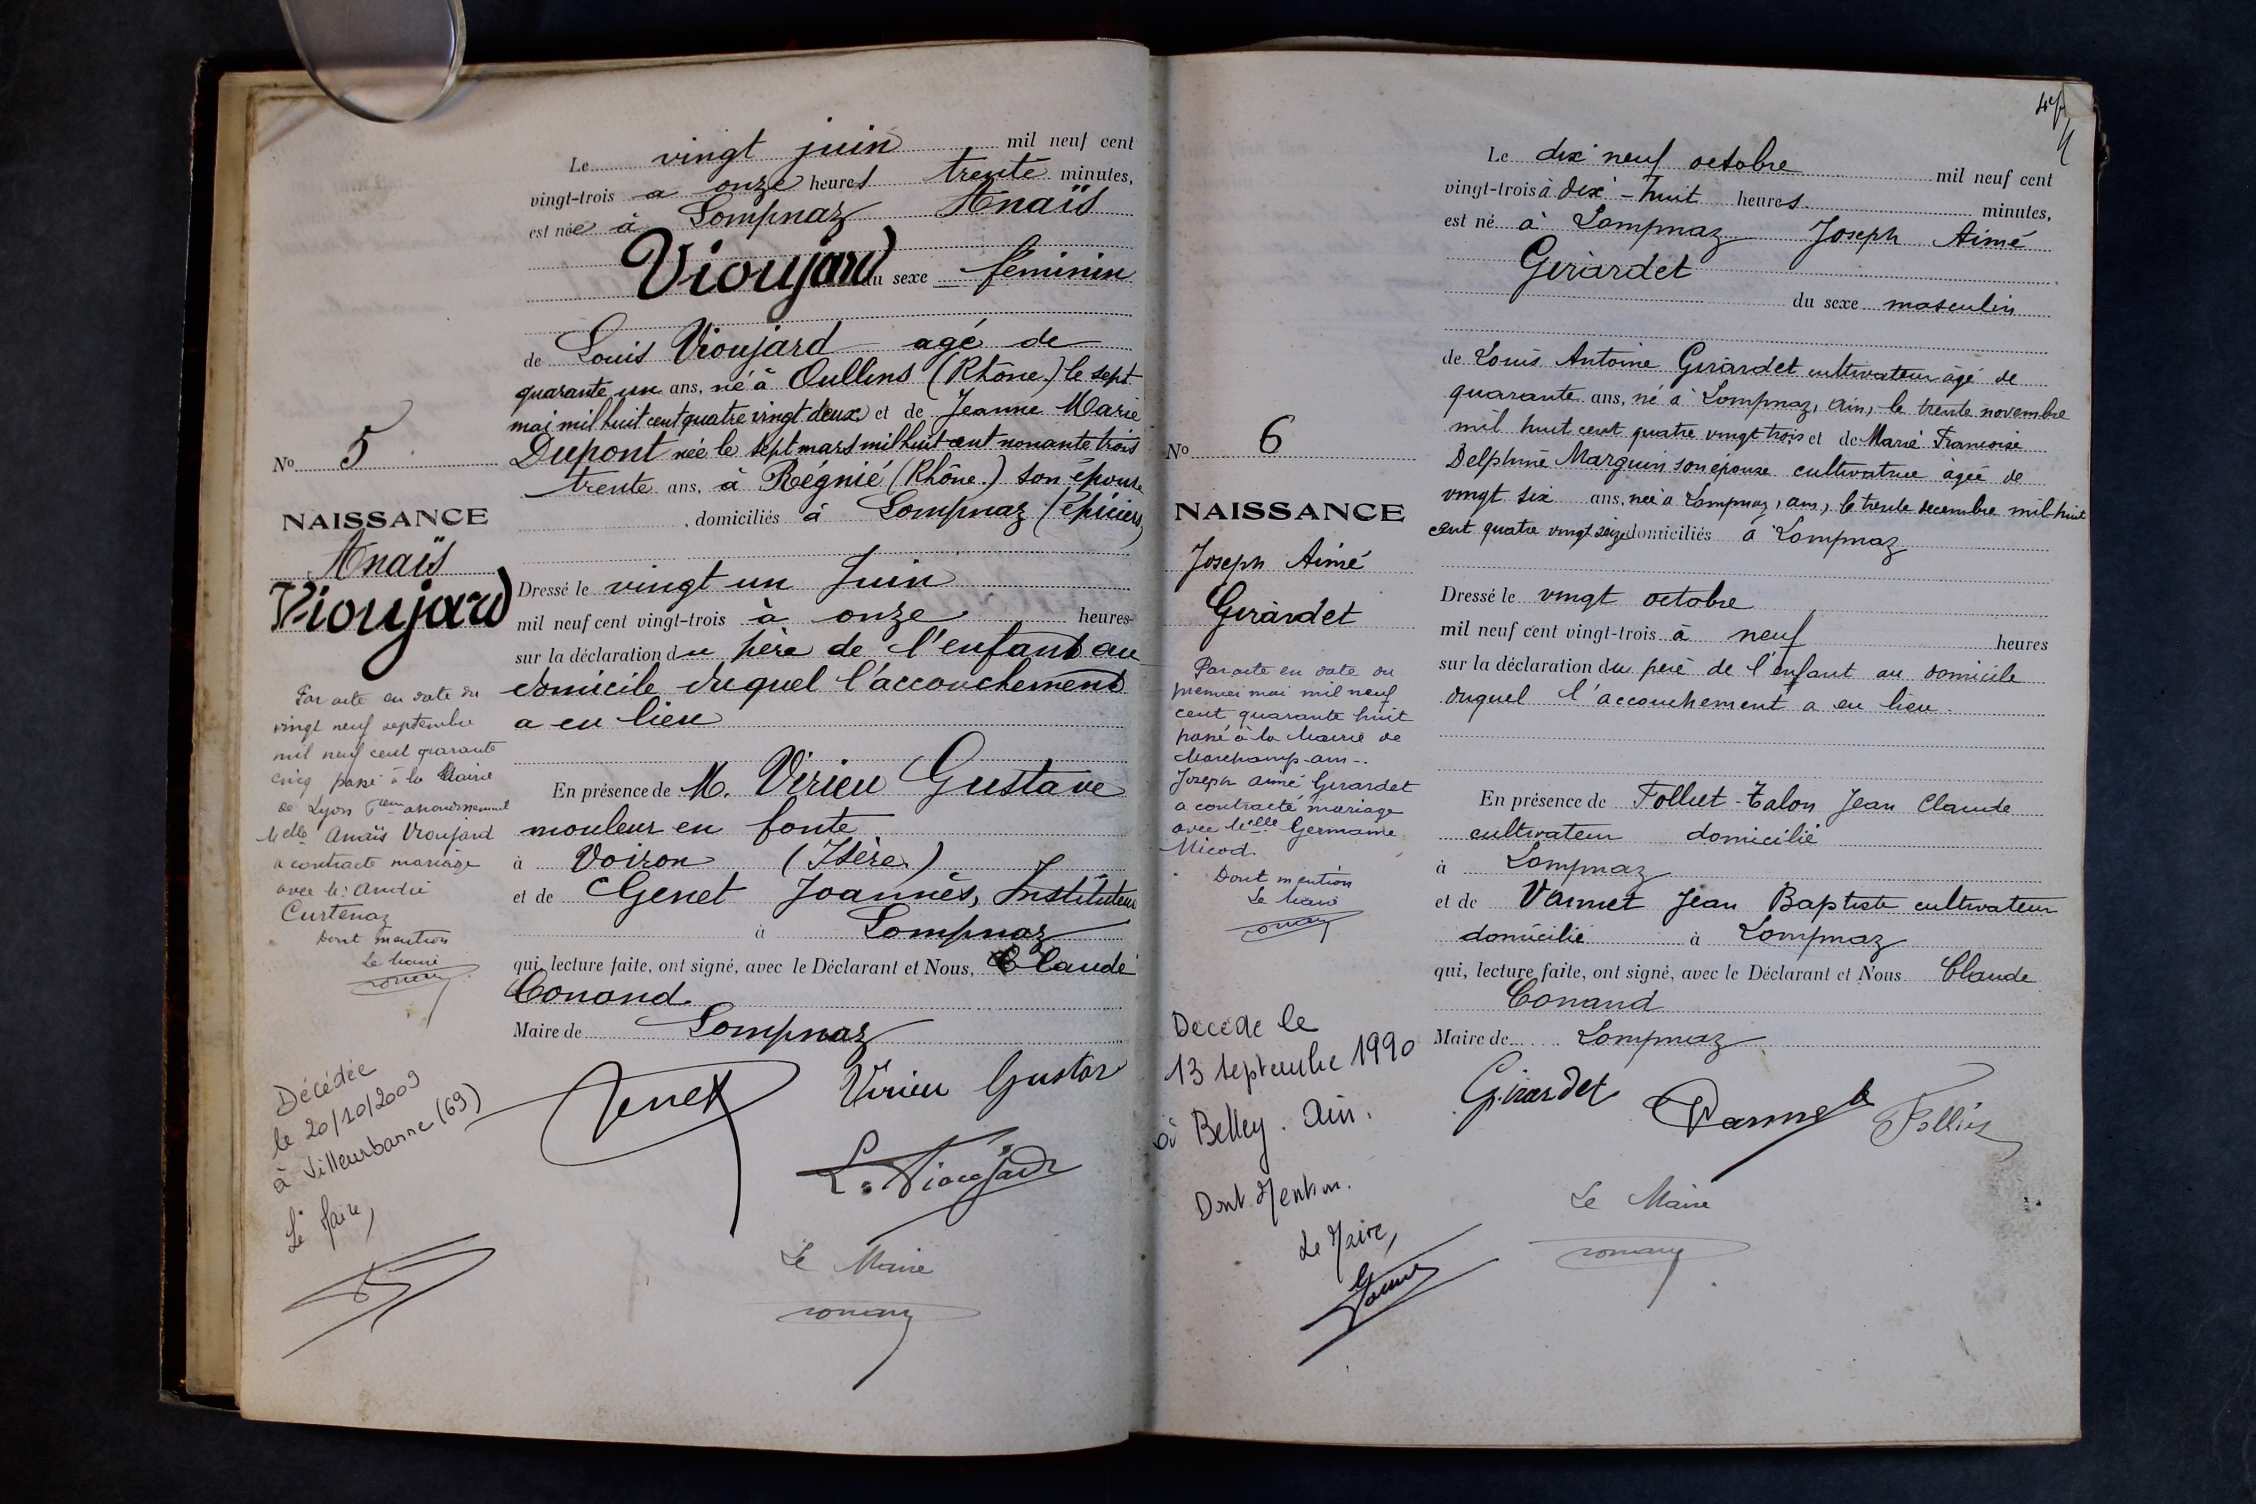 Le vingt juin mil neuf cent
vingt-trois a onze heures trente minutes,
est née à Lompnaz Anaïs
Vioujard du sexe féminin
de Louis Vioujard agé de
quarante un ans, né à Oullins (Rhône.) le sept
mai mil huit cent quatre vingt deux et de Jeanne Marie
Dupont née le sept mars mil huit cent nonante trois
trente ans, à Régnié (Rhône.) son épouse
, domiciliés à Lompnaz (épiciers)
Dressé le vingt un Juin
mil neuf cent vingt-trois à onze heures
sur la déclaration du père de l'enfant au
domicile duquel l'accouchement
a eu lieu
En présence de M. Virieu Gustave
mouleur en fonte
à Voiron (Isère)
et de Genet Joannès, Instituteur
à Lompnaz
qui, lecture faite, ont signé, avec le Déclarant et Nous, Claude
Conand
Maire de Lompnaz
Genet Virieu Gustav
L. Vioujard
Le Maire
Conand
No 5
NAISSANCE
Anaïs
Vioujard
Par acte en date du
vingt neuf septembre
mil neuf cent quarante
cinq passé à la Mairie
de Lyon arrondissement
Melle Anaïs Vioujard
a contracté mariage
avec Mr André
Curtenaz
Dont mention
Le Maire
Conand
Décédée
le 20/10/2009
à Villeurbanne (69)
Le Maire,
4
Le dix neuf octobre mil neuf cent
vingt-trois à dix-huit heures minutes,
est né à Lompnaz Joseph Aimé
Girardet
du sexe masculin
de Louis Antoine Girardet cultivateur âgé de
quarante ans, né à Lompnaz, Ain, le trente novembre
mil huit cent quatre vingt trois et de Marie Françoise
Delphine Marguin son épouse cultivatrice âgée de
vingt six ans, née à Lompnaz, ain, le trente decembre mil huit
cent quatre vingt seize domiciliés à Lompnaz
Dressé le vingt octobre
mil neuf cent vingt-trois à neuf heures
sur la déclaration du père de l'enfant au domicile
duquel l'accouchement a eu lieu.
En présence de Folliet-Talon Jean Claude
cultivateur domicilié
à Lompnaz
et de Vannet Jean Baptiste cultivateur
domicilié à Lompnaz
qui, lecture faite, ont signé, avec le Déclarant et Nous Claude
Conand
Maire de Lompnaz
Girardet Vannet Folliet
Le Maire
Conand
No 6
NAISSANCE
Joseph Aimé
Girardet
Par acte en date du
premier mai mil neuf
cent quarante huit
passé à la Mairie de
Marchamp-ain-.
Joseph Aimé Girardet
a contracté mariage
avec Melle Germaine
Micod.
Dont mention
Le Maire
Conand
Décédé le
13 septembre 1990
à Belley. Ain.
Dont Mention.
Le Maire,